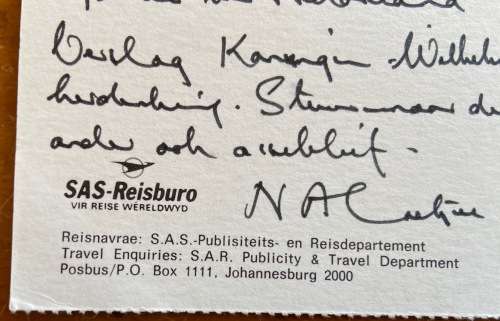 Verslag Koningin Wilhel
herdenking. Stuur maar de
ander ook asseblief.
N A C
SAS-Reisburo
VIR REISE WÊRELDWYD
Reisnavrae: S.A.S.-Publisiteits- en Reisdepartement
Travel Enquiries: S.A.R. Publicity & Travel Department
Posbus/P.O. Box 1111, Johannesburg 2000